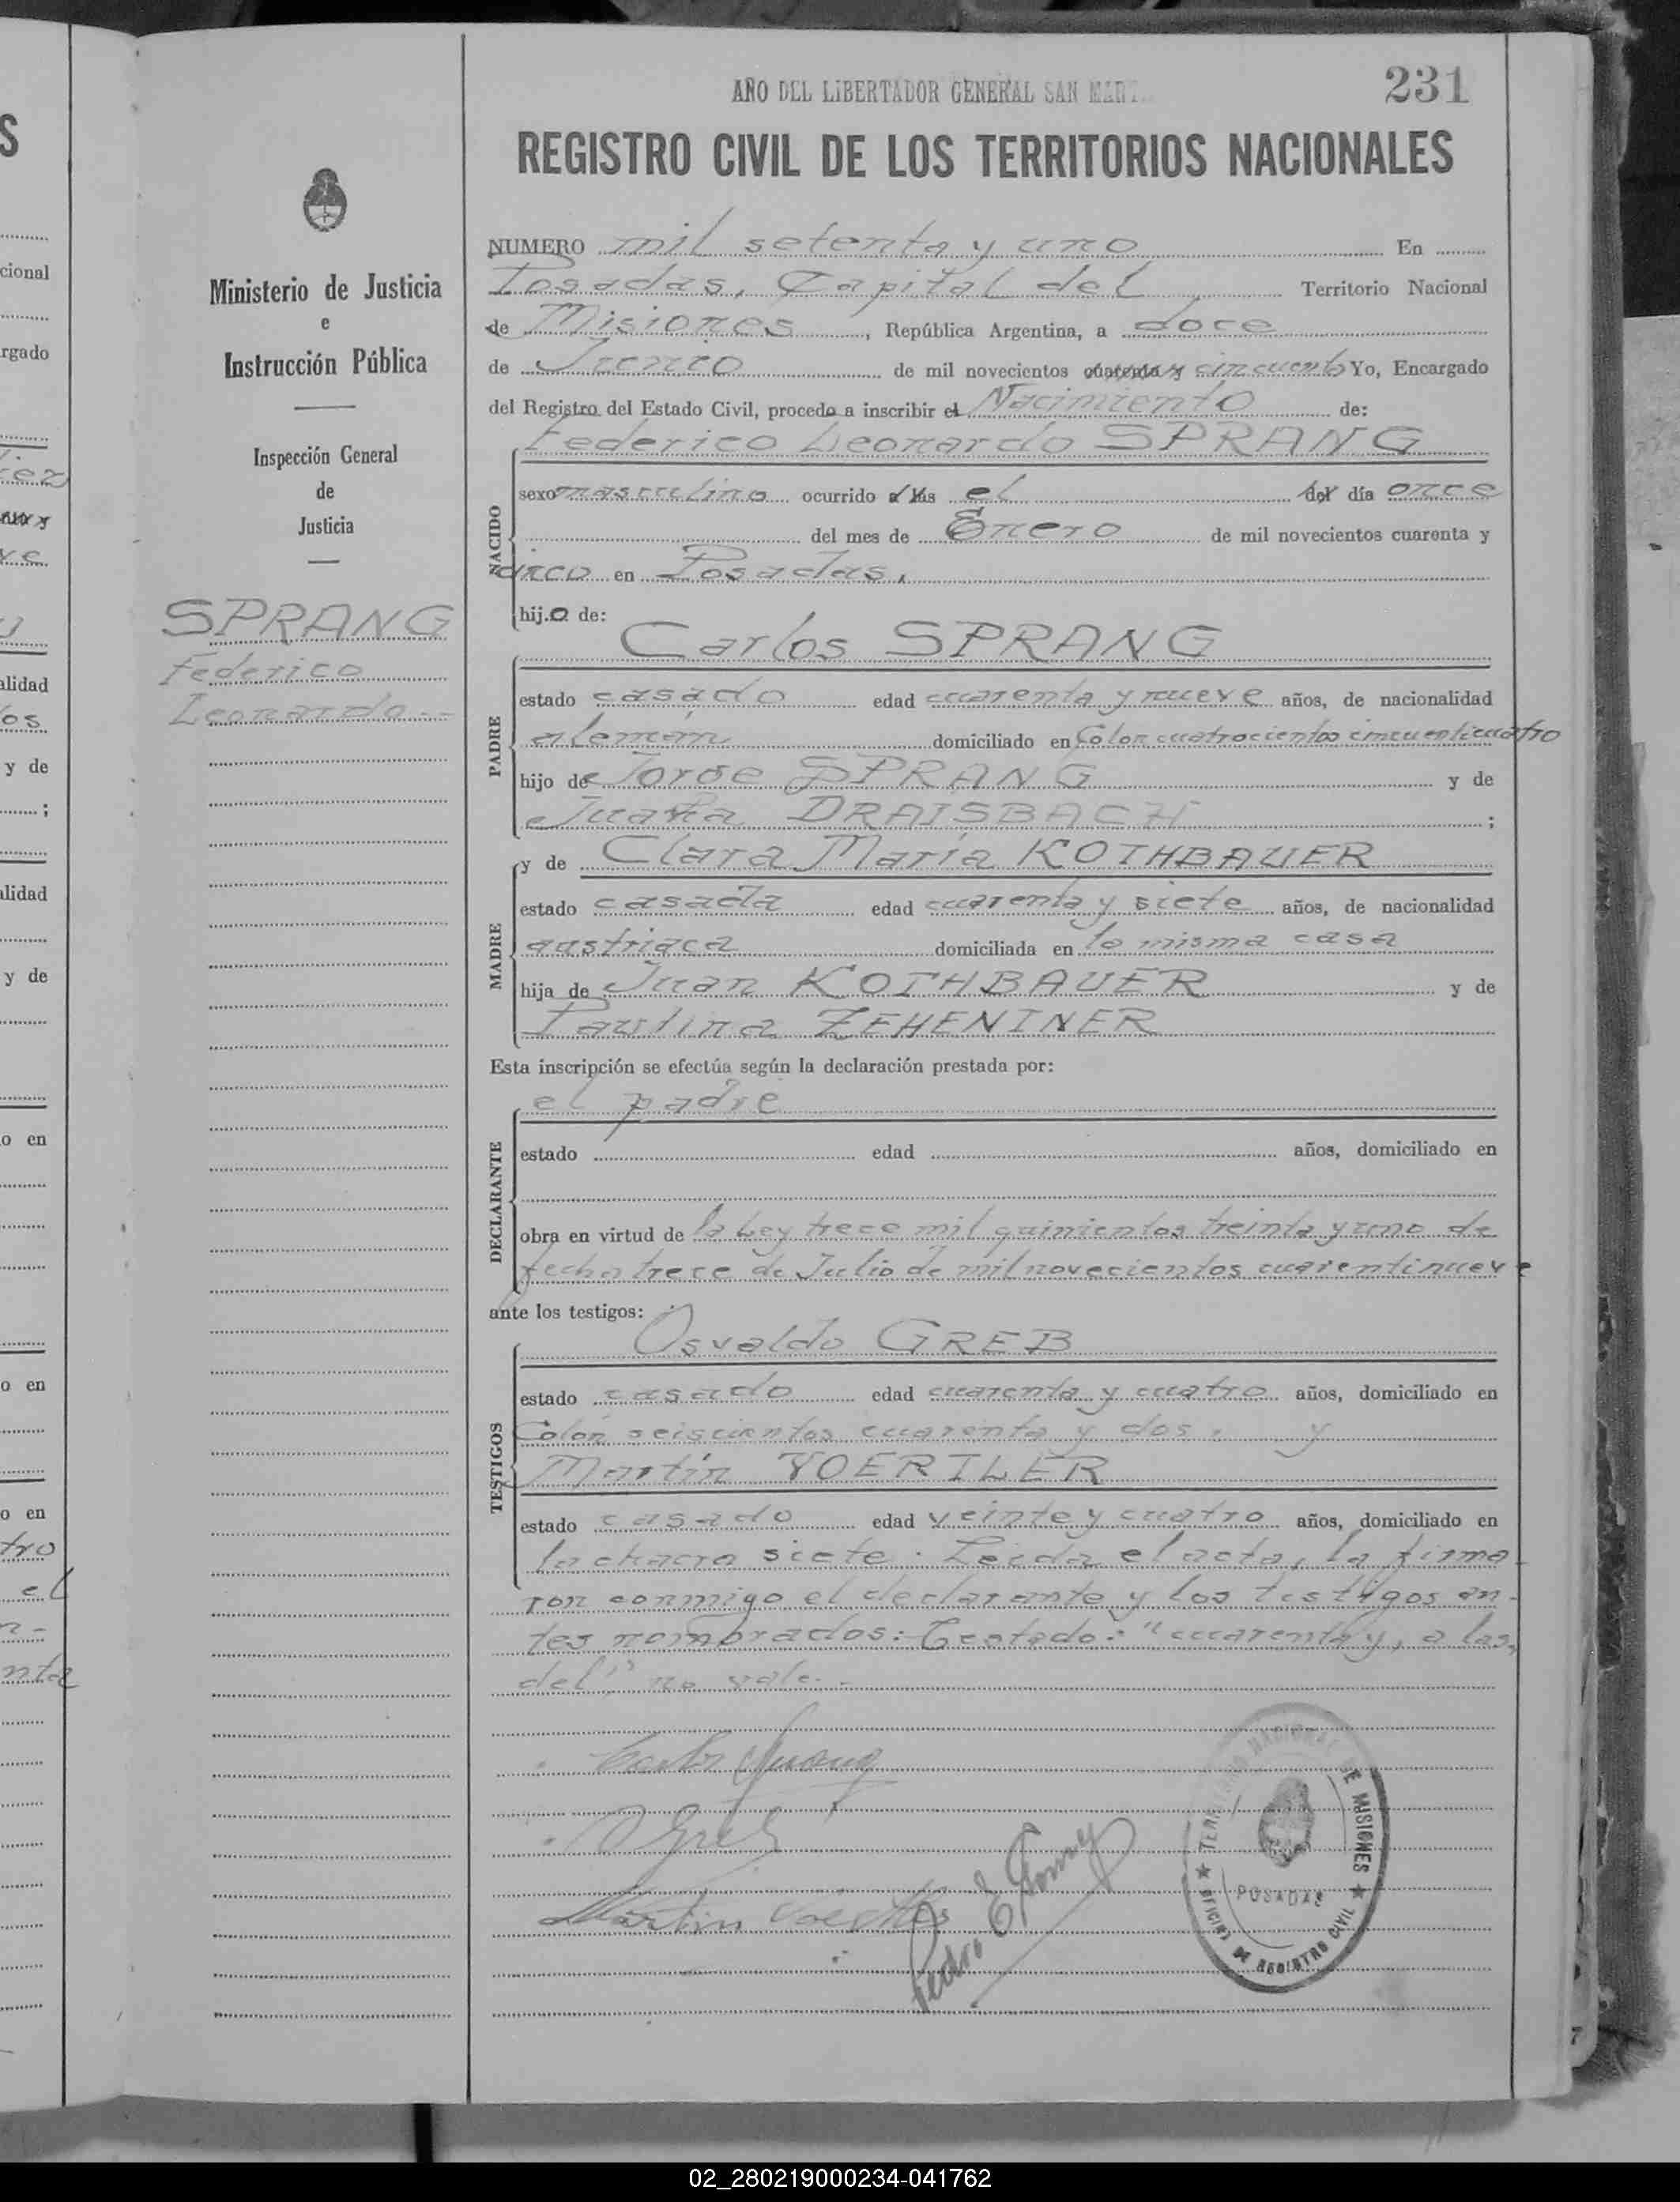 AÑO DEL LIBERTADOR GENERAL SAN MART
231
REGISTRO CIVIL DE LOS TERRITORIOS NACIONALES
Ministerio de Justicia
e
Instrucción Pública
Inspección General
de
Justicia
SPRANG
Federico
Leonardo.--
NUMERO mil setenta y uno En
Posadas, Capital del Territorio Nacional
de Misiones, República Argentina, a doce
de Junio de mil novecientos cuarenta y cincuenta Yo, Encargado
del Registro del Estado Civil, procedo a inscribir el Nacimiento de:
Federico Leonardo SPRANG
NACIDO
sexo masculino ocurrido a las el del día once
del mes de Enero de mil novecientos cuarenta y
cinco en Posadas,
hijo de:
Carlos SPRANG
PADRE
estado casado edad cuarenta y nueve años, de nacionalidad
alemán domiciliado en Colon cuatrocientos cincuenticuatro
hijo de Jorge SPRANG y de
Juana DRAISBACH ;
y de Clara María KOTHBAUER
MADRE
estado casada edad cuarenta y siete años, de nacionalidad
austriaca domiciliada en la misma casa
hija de Juan KOTHBAUER y de
Paulina ZEHENINER
Esta inscripción se efectúa según la declaración prestada por:
el padre
DECLARANTE
estado edad años, domiciliado en
obra en virtud de la Ley trece mil quinientos treinta y uno de
fecha trece de Julio de mil novecientos cuarentinueve
ante los testigos:
Osvaldo GREB
TESTIGOS
estado casado edad cuarenta y cuatro años, domiciliado en
Colón seiscientos cuarenta y dos. y
Martín VOERTLER
estado casado edad veinte y cuatro años, domiciliado en
la chacra siete. Leida el acta, la firma-
ron conmigo el declarante y los testigos an-
tes nombrados:- Testado: "cuarenta y, a las,
del", no vale.-
Pedro E Gomez
TERRITORIO NACIONAL DE MISIONES
POSADAS
OFICINA DE REGISTRO CIVIL
02_280219000234-041762